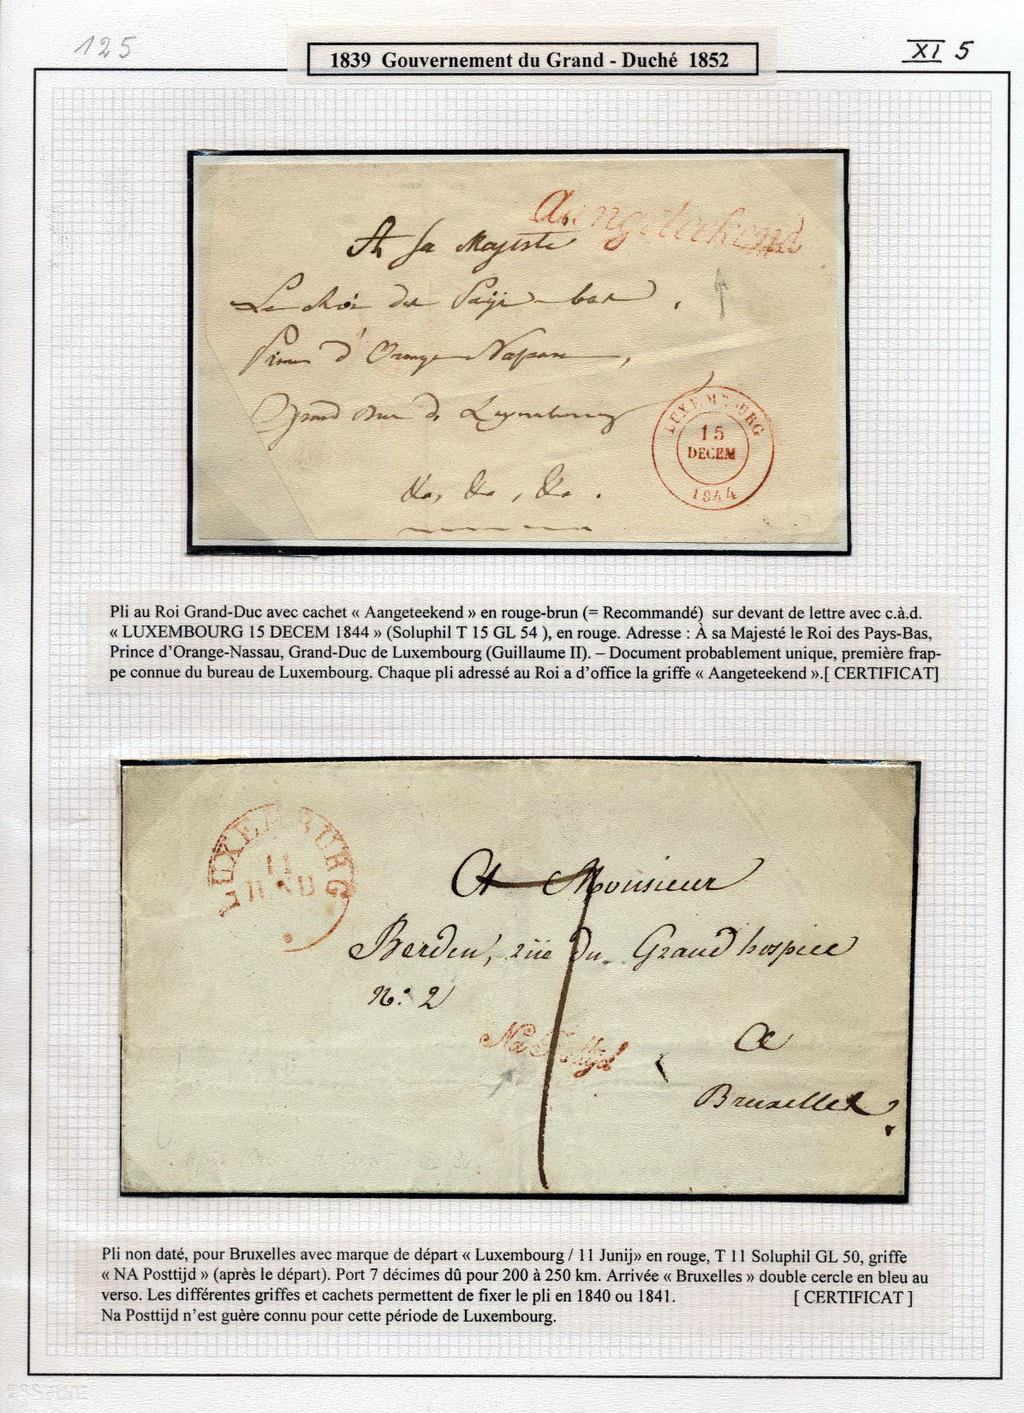 125
XI 5
1839 Gouvernement du Grand - Duché 1852
Aangeteekend
A sa Majesté
Le Roi des Pays-bas,
Prince d'Orange Nassau,
Grand Duc de Luxembourg
&a, &a, &a.
LUXEMBOURG
15
DECEM
1844
Pli au Roi Grand-Duc avec cachet « Aangeteekend » en rouge-brun (= Recommandé) sur devant de lettre avec c.à.d.
« LUXEMBOURG 15 DECEM 1844 » (Soluphil T 15 GL 54 ), en rouge. Adresse : À sa Majesté le Roi des Pays-Bas,
Prince d'Orange-Nassau, Grand-Duc de Luxembourg (Guillaume II). – Document probablement unique, première frap-
pe connue du bureau de Luxembourg. Chaque pli adressé au Roi a d'office la griffe « Aangeteekend ».[ CERTIFICAT]
LUXEMBURG
11
JUNIJ
A Monsieur
Berden, rüe du Grand hospice
N: 2
Na Posttijd
a
Bruxelles
7
Pli non daté, pour Bruxelles avec marque de départ « Luxembourg / 11 Junij» en rouge, T 11 Soluphil GL 50, griffe
« NA Posttijd » (après le départ). Port 7 décimes dû pour 200 à 250 km. Arrivée « Bruxelles » double cercle en bleu au
verso. Les différentes griffes et cachets permettent de fixer le pli en 1840 ou 1841. [ CERTIFICAT ]
Na Posttijd n'est guère connu pour cette période de Luxembourg.